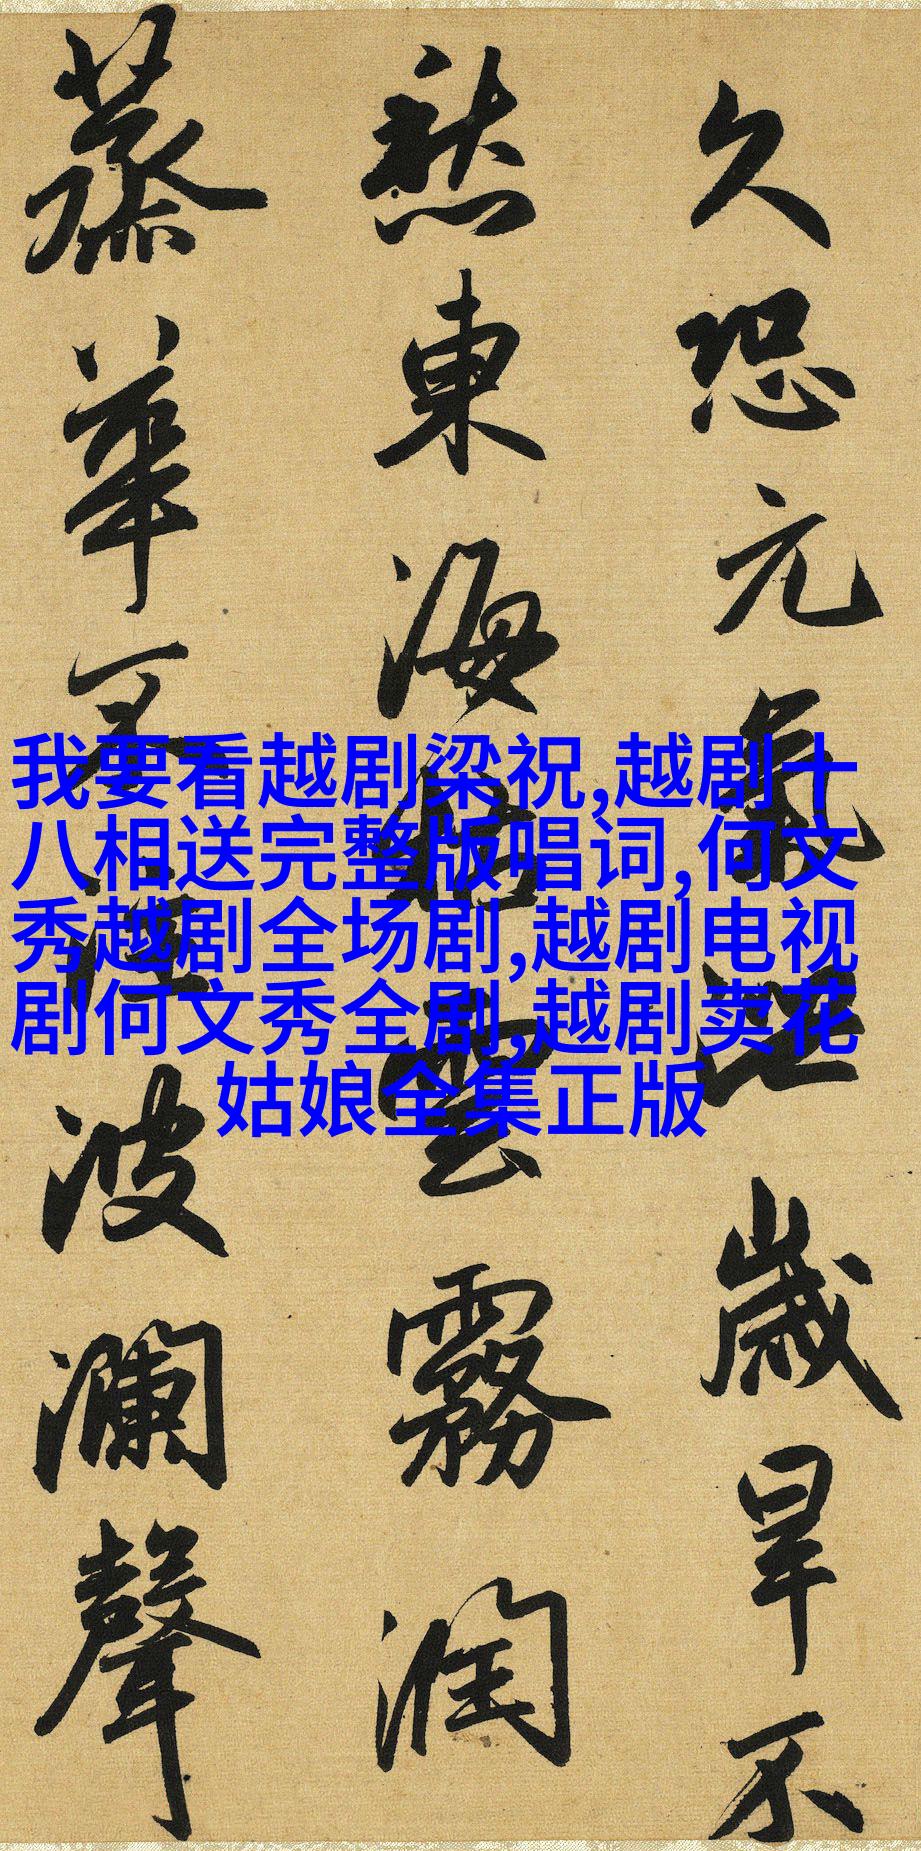 久恐元氣泄歲旱不
愁東海枯雲霧潤
蒸華不注波瀾聲
我要看越剧梁祝,越剧十
八相送完整版唱词,何文
秀越剧全场剧,越剧电视
剧何文秀全剧,越剧卖花
姑娘全集正版